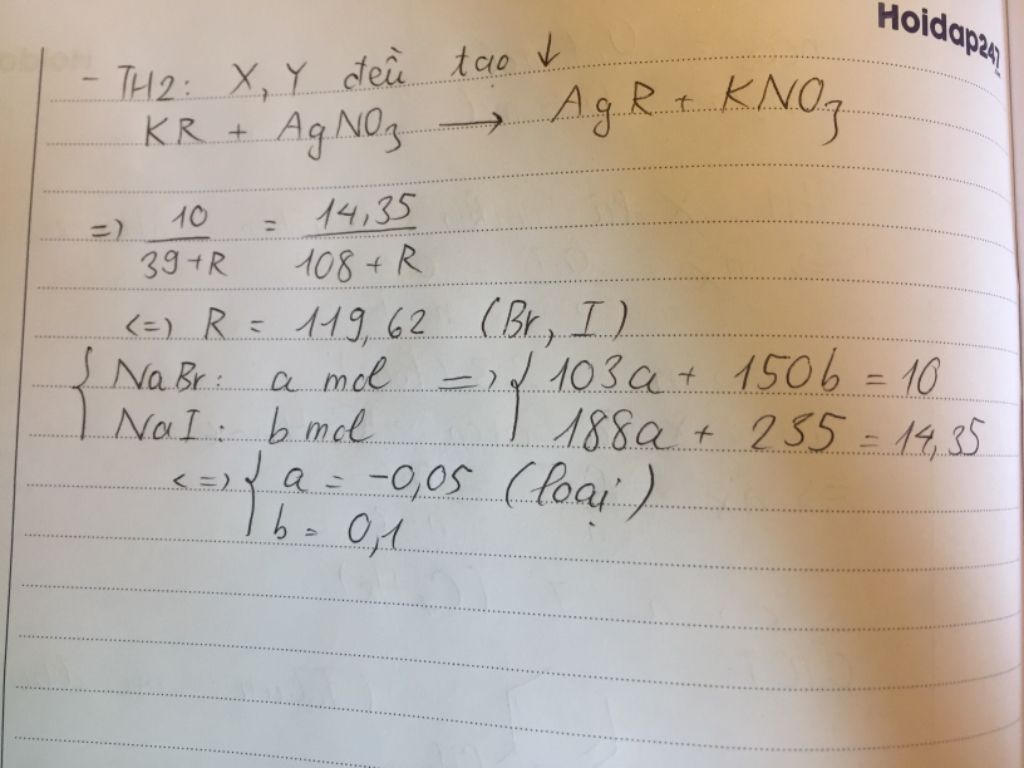 Hoidap247
- TH2: X, Y đều tạo ↓
KR + AgNO3 → AgR + KNO3
=> 10/(39+R) = 14,35/(108+R)
<=> R = 119,62 (Br, I)
{ NaBr: a mol => { 103a + 150b = 10
NaI: b mol 188a + 235 = 14,35
<=> { a = -0,05 (loại)
b = 0,1